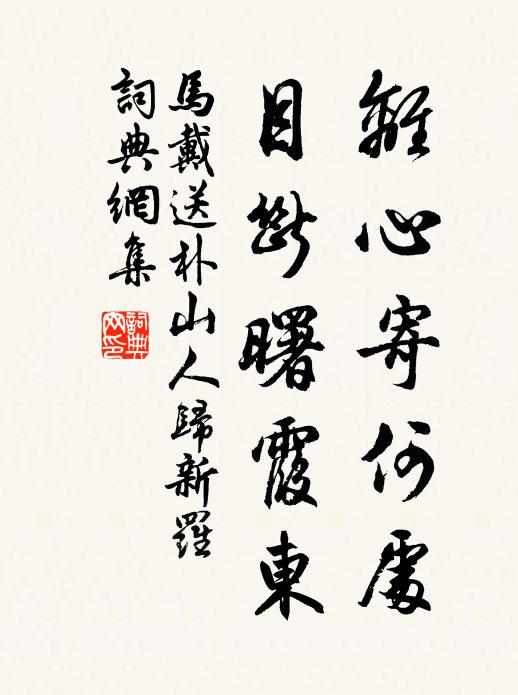 離心寄何處
目斷曙霞東
馬戴送朴山人歸新羅
詞典網集
詞典
网印